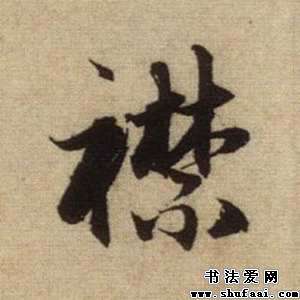 襟
书法爱网
www.shufaai.com